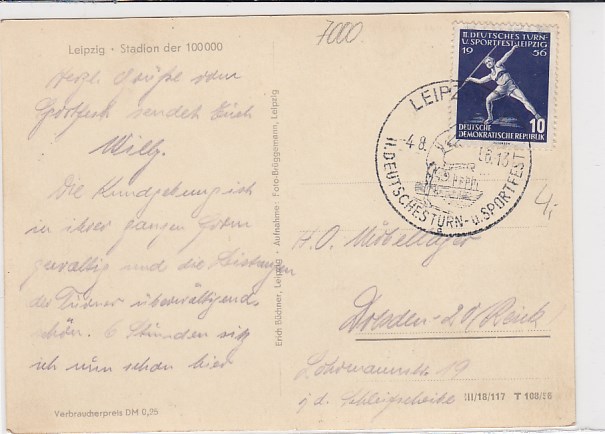 Leipzig · Stadion der 100 000
7000
Herzl. Grüße vom
Sportfest sendet Euch
Willy.
Die Kundgebung ist
in ihrer ganzen Form
gewaltig und die Leistungen
der Turner überwältigend
schön. 6 Stunden sitz
ich nun schon hier
Verbraucherpreis DM 0,25
Erich Büchner, Leipzig · Aufnahme: Foto-Brüggemann, Leipzig
II. DEUTSCHES TURN-
U. SPORTFEST · LEIPZIG
19 56
DEUTSCHE
DEMOKRATISCHE REPUBLIK
10
LEIPZ
4 8.
56.13
II. DEUTSCHES TURN- u. SPORTFEST
4,-
H.O. Möbellager
Dresden-
19
a.d. Schleifscheibe
III/18/117 T 108/56